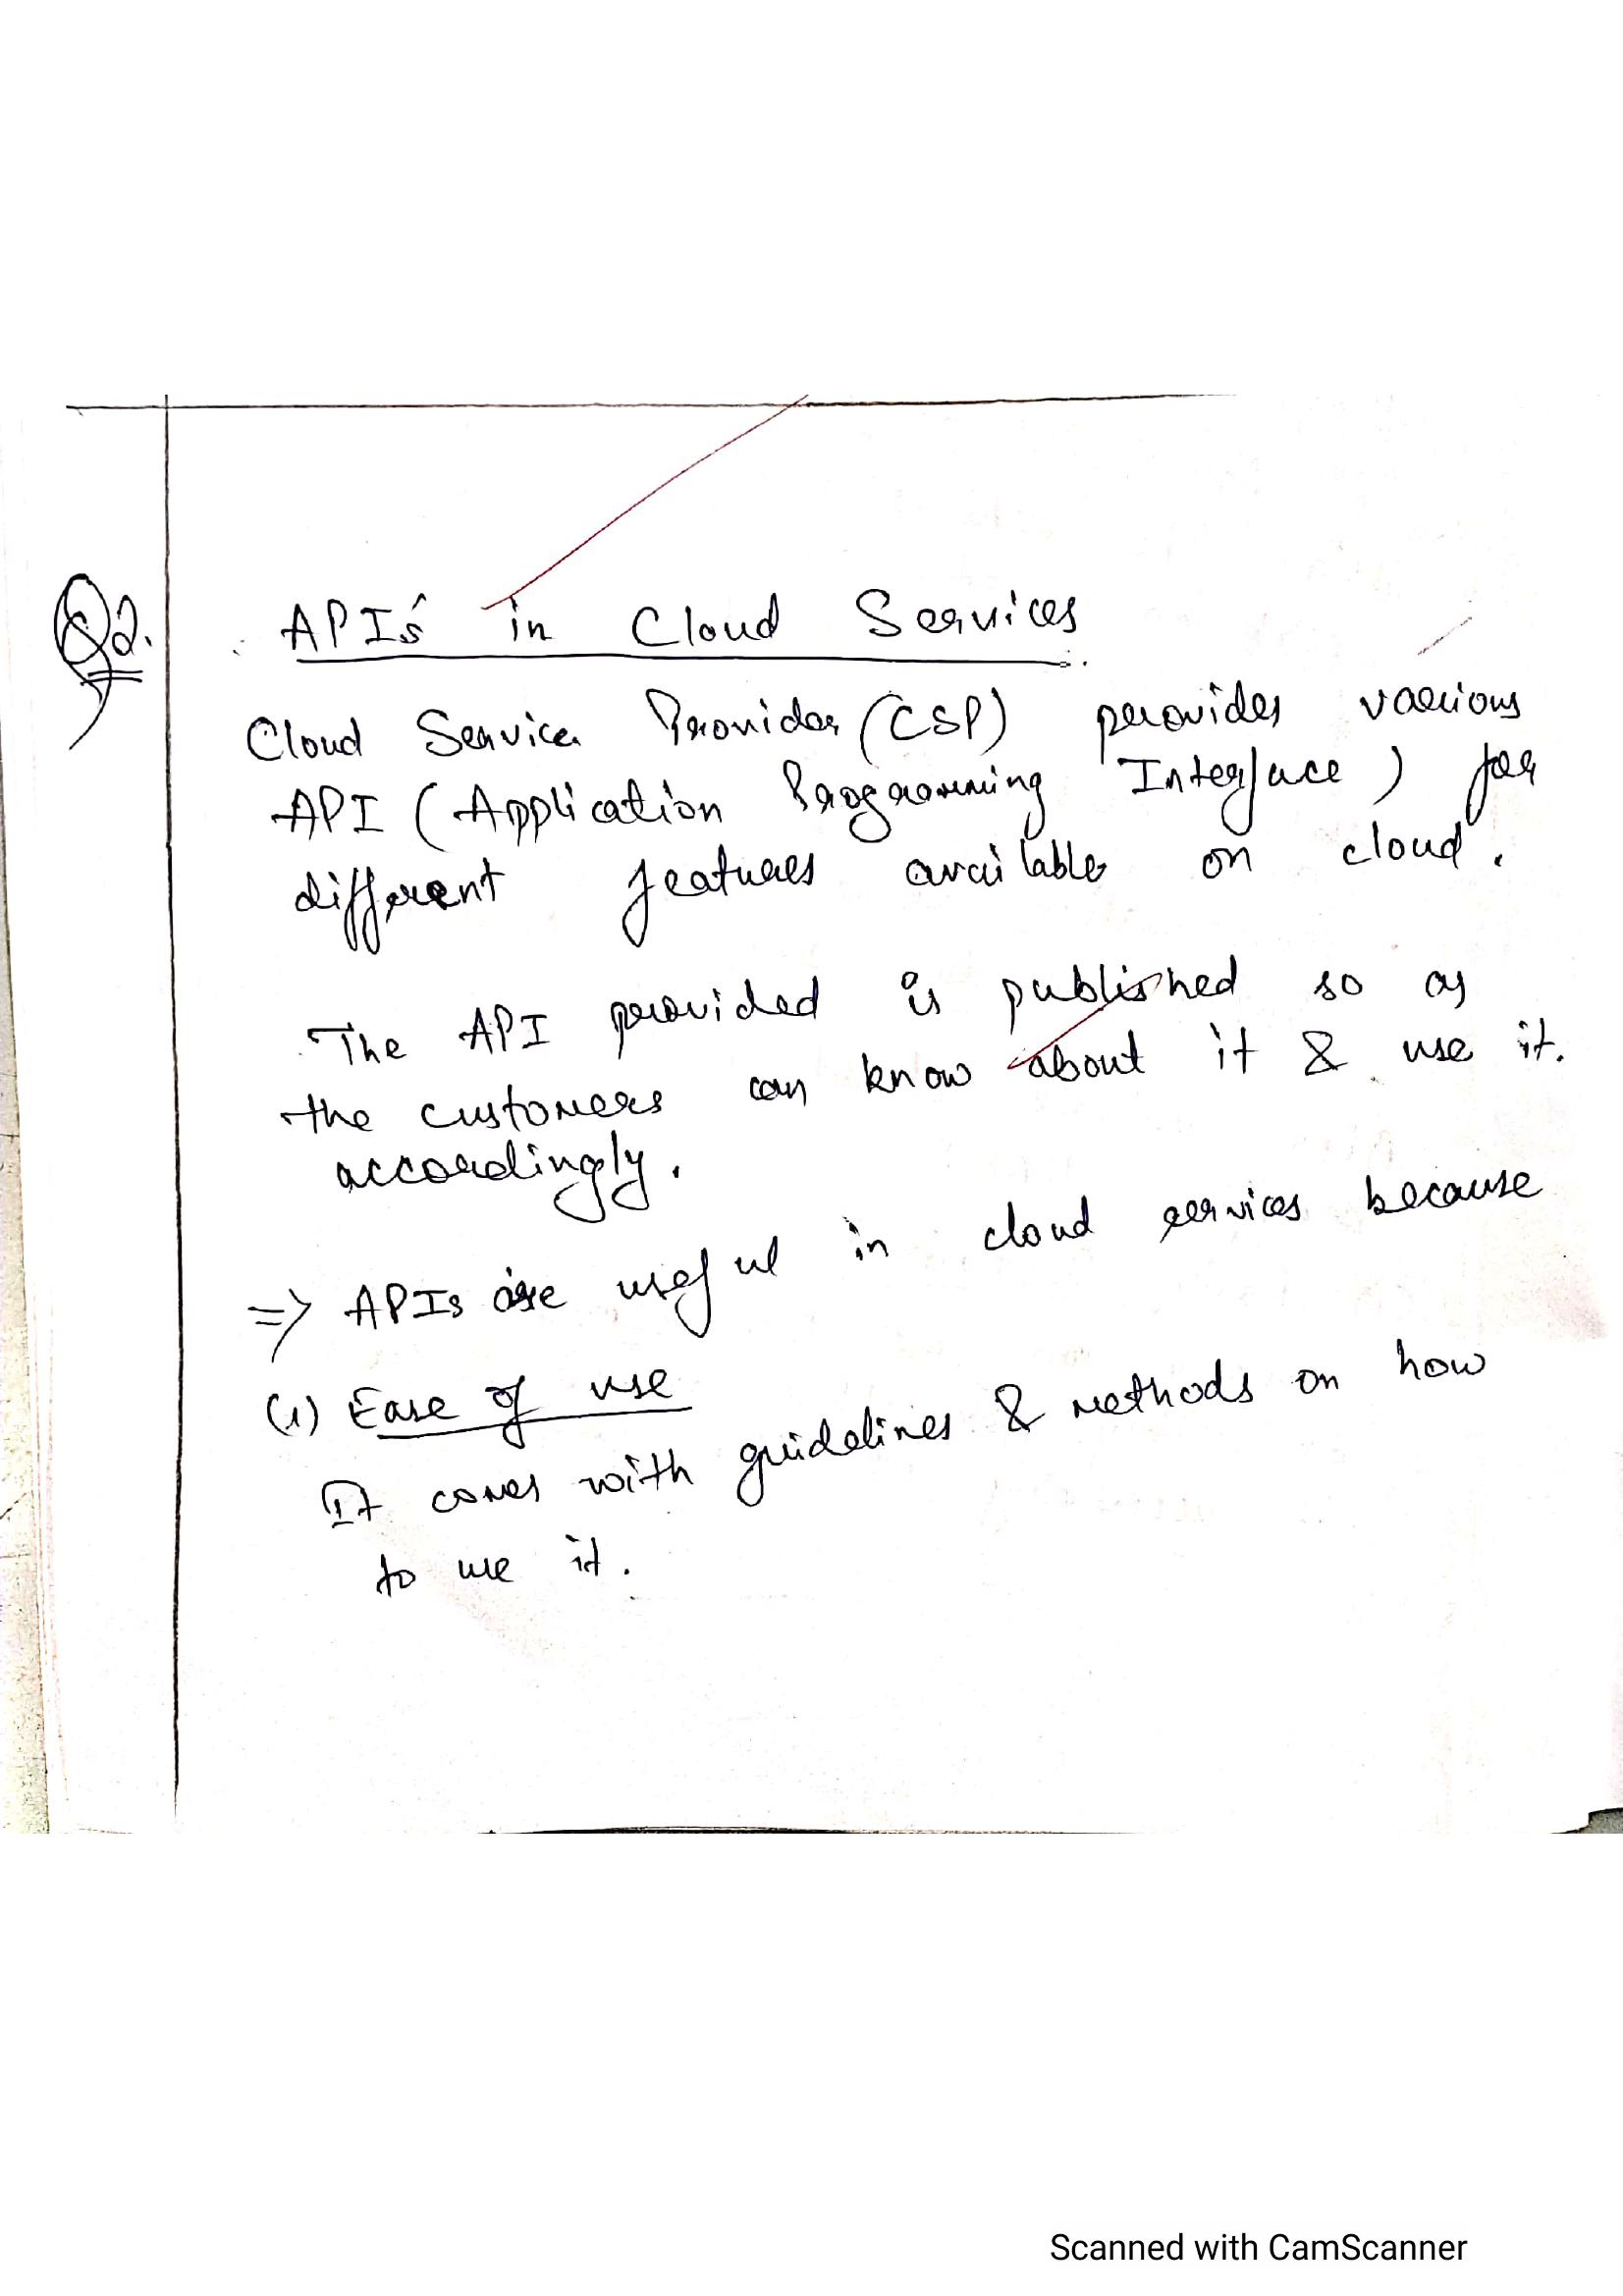 Q2. API's in Cloud Services
Cloud Service Provider (CSP) provides various
API (Application Programming Interface) for
different features available on cloud.
The API provided is published so as
the customers can know about it & use it.
accordingly.
=> APIs are useful in cloud services because
(1) Ease of use
It comes with guidelines & methods on how
to use it.
Scanned with CamScanner